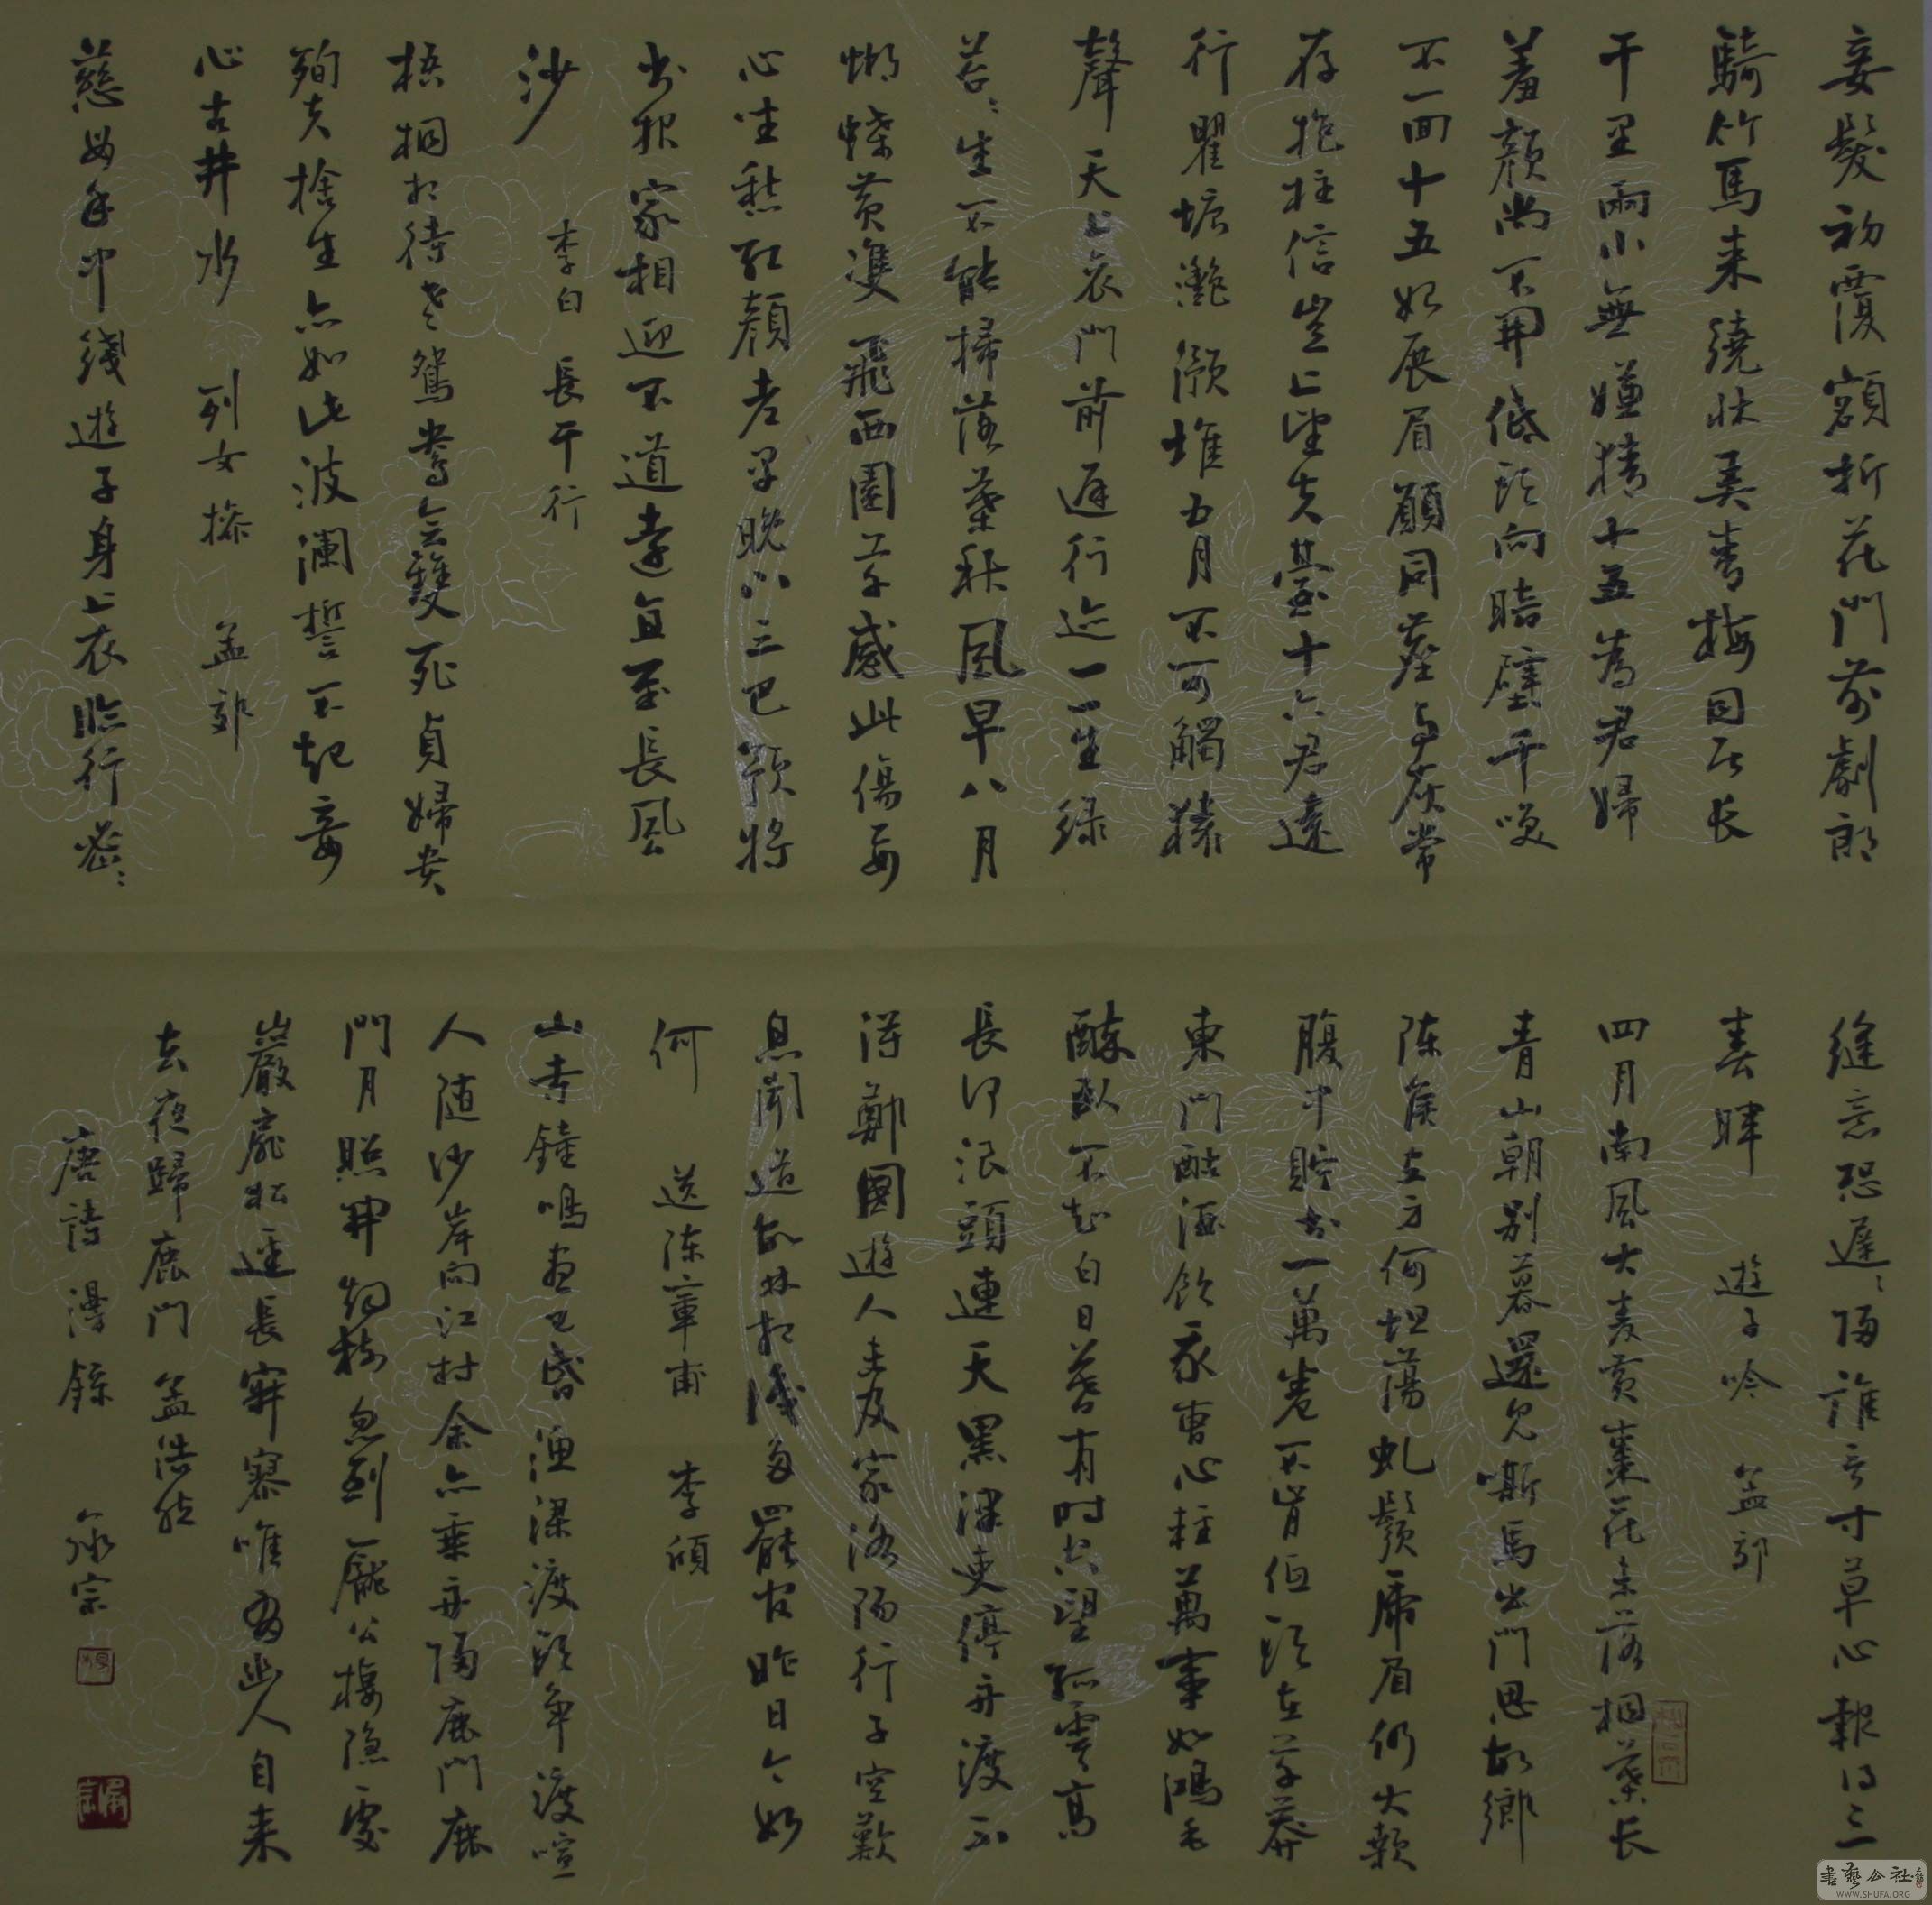 妾髮初覆額折花門前劇郎
騎竹馬来繞牀弄青梅同居长
干里兩小無嫌猜十五為君婦
羞顏尚不開低头向暗壁千喚
不一回十五始展眉願同塵与灰常
存抱柱信豈上望夫臺十六君遠
行瞿塘灧澦堆五月不可觸猿
聲天上哀門前遲行迹一一生绿
苔〻生不能掃落葉秋風早八月
蝴蝶黄雙飛西園草感此傷妾
心坐愁红顏老早晚下三巴预将
书报家相迎不道远直至長風
沙 李白 長干行
梧桐相待老鴛鴦会雙死貞婦贵
殉夫捨生亦如此波瀾誓不起妾
心古井水 列女操 孟郊
慈母手中綫遊子身上衣臨行密〻
縫意恐遲〻歸誰言寸草心報得三
春暉 遊子吟 孟郊
四月南風大麦黄棗花未落桐葉长
青山朝别暮還见嘶馬出門思故鄉
陈侯立身何坦蕩虬鬚虎眉仍大颡
腹中貯书一萬卷不肯低头在草莽
東門酤酒飲我曹心轻萬事如鴻毛
醉卧不知白日暮有时空望孤雲高
長河浪頭連天黑津吏停舟渡不
得鄭國遊人未及家洛陽行子空歎
息聞道故林相识多罷官昨日今如
何 送陈章甫 李颀
山寺鐘鳴昼已昏渔梁渡头争渡喧
人随沙岸向江村余亦乘舟歸鹿門鹿
門月照開烟树忽到龐公棲隐處
巖扉松迳長寂寥唯有幽人自来
去夜歸鹿門 孟浩然
唐詩漫錄 永宗
書藝公社
WWW.SHUFA.ORG